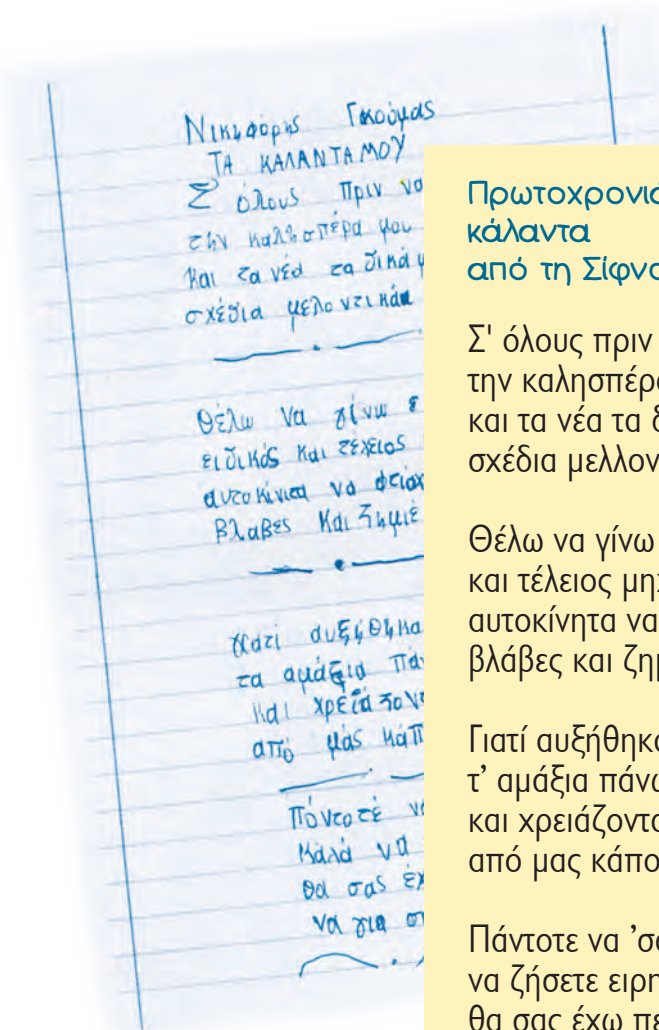 Νικηφόρης Γκούμας
ΤΑ ΚΑΛΑΝΤΑ ΜΟΥ
Σ όλους Πριν να
την καλησπέρα μου
και τα νέα τα δικά
σχέδια μελοντικά
Θέλω να γίνω
ειδικός και τέχειος
αυτοκίνιτα να
βλαβες και
γιατί αυξήθηκα
τα αμάξια
και
από μάς
Πάντοτέ
καλά να
θα σας
να για
Πρωτοχρονιά
κάλαντα
από τη Σίφνο
Σ' όλους πριν
την καλησπέρα
και τα νέα τα
σχέδια
Θέλω να γίνω
και τέλειος
αυτοκίνητα να
βλάβες και
Γιατί αυξήθηκα
τ' αμάξια πάνω
και
από μας
Πάντοτε να
να ζήσετε
θα σας έχω